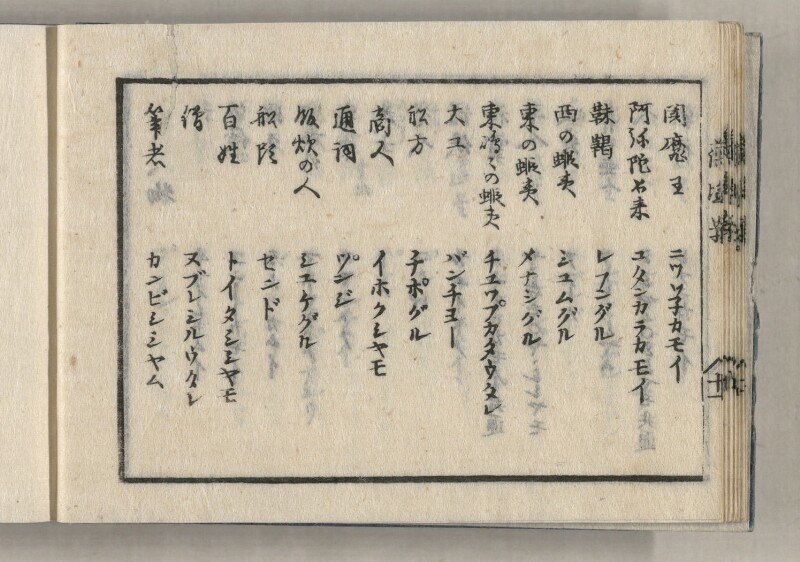 閻魔王 ニワ子カモイ
阿弥陀如来 コタンカラカモイ
靺鞨 レフングル
西の蝦夷 シユムグル
東の蝦夷 メナシグル
東嶋々の蝦夷 チユプカタウタレ
大工 バンチヨー
舩方 チポグル
商人 イホクシヤモ
通詞 ツンジ
飯炊の人 シユケグル
舩頭 センド
百姓 トイタシシヤモ
僧 ヌプレシルウタレ
筆者 カンビシシヤム